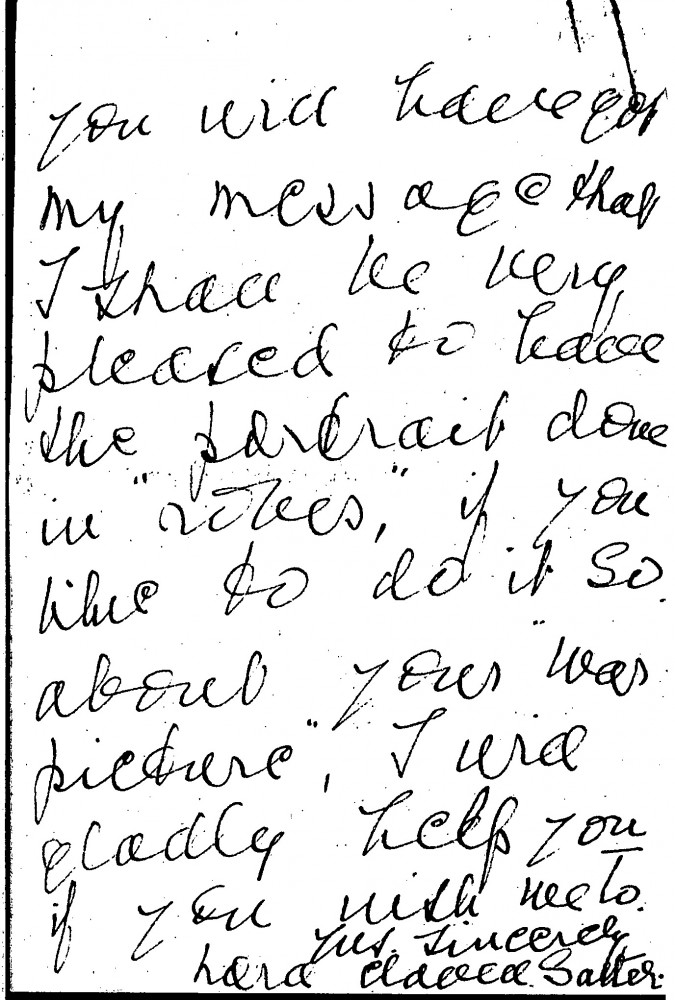 you will have got
my message that
I shall be very
pleased to have
the portrait done
in "robes," if you
like to do it so.
about your "war
picture", I will
gladly help you
if you wish me to.
yrs. sincerely
Salter.